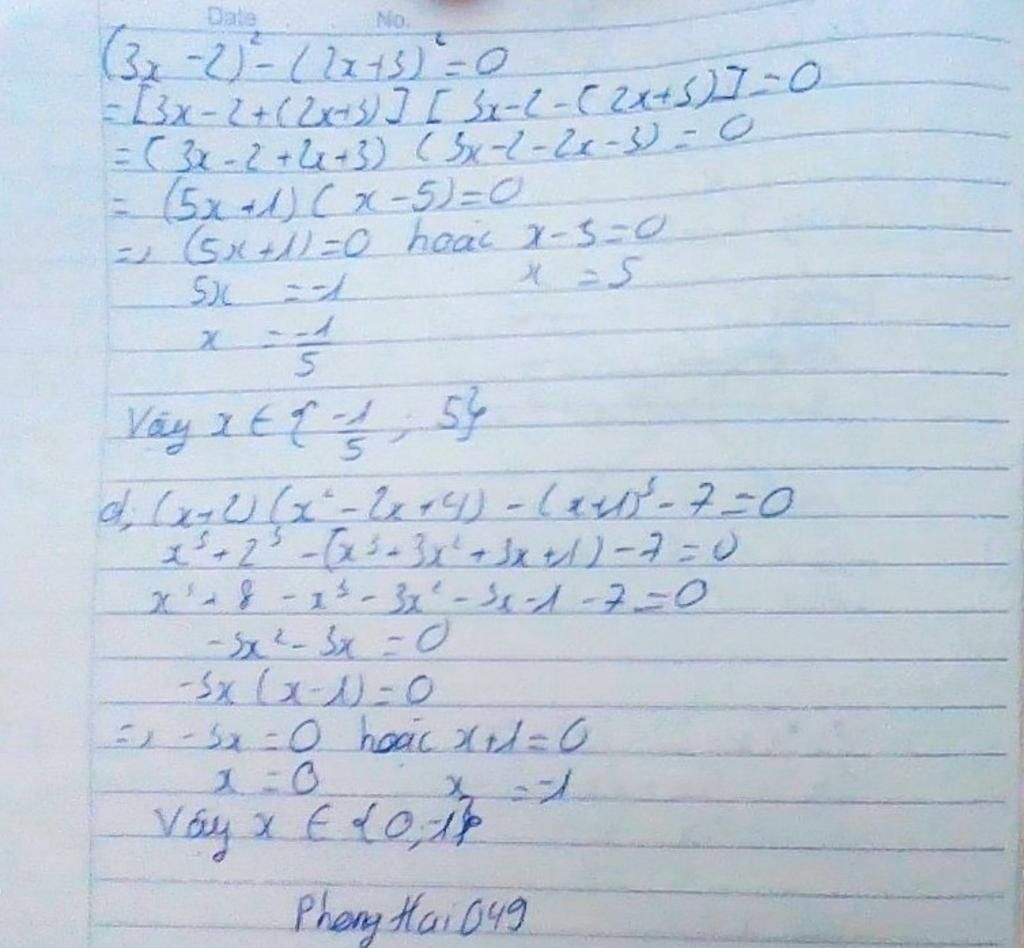 Date No.
(3x - 2)² - (2x+3)² = 0
= [3x - 2 + (2x+3)] [3x - 2 - (2x+3)] = 0
= (3x - 2 + 2x + 3) (3x - 2 - 2x - 3) = 0
= (5x + 1) ( x - 5) = 0
=> (5x + 1) = 0 hoặc x - 5 = 0
5x = -1 x = 5
x = -1/5
Vậy x ∈ { -1/5 ; 5}
d, (x+2) (x² - 2x + 4) - (x+1)³ - 7 = 0
x³ + 2³ - (x³ + 3x² + 3x + 1) - 7 = 0
x³ + 8 - x³ - 3x² - 3x - 1 - 7 = 0
-3x² - 3x = 0
-3x (x - 1) = 0
=> -3x = 0 hoặc x + 1 = 0
x = 0 x = -1
Vậy x ∈ {0, -1}
PhongHai049